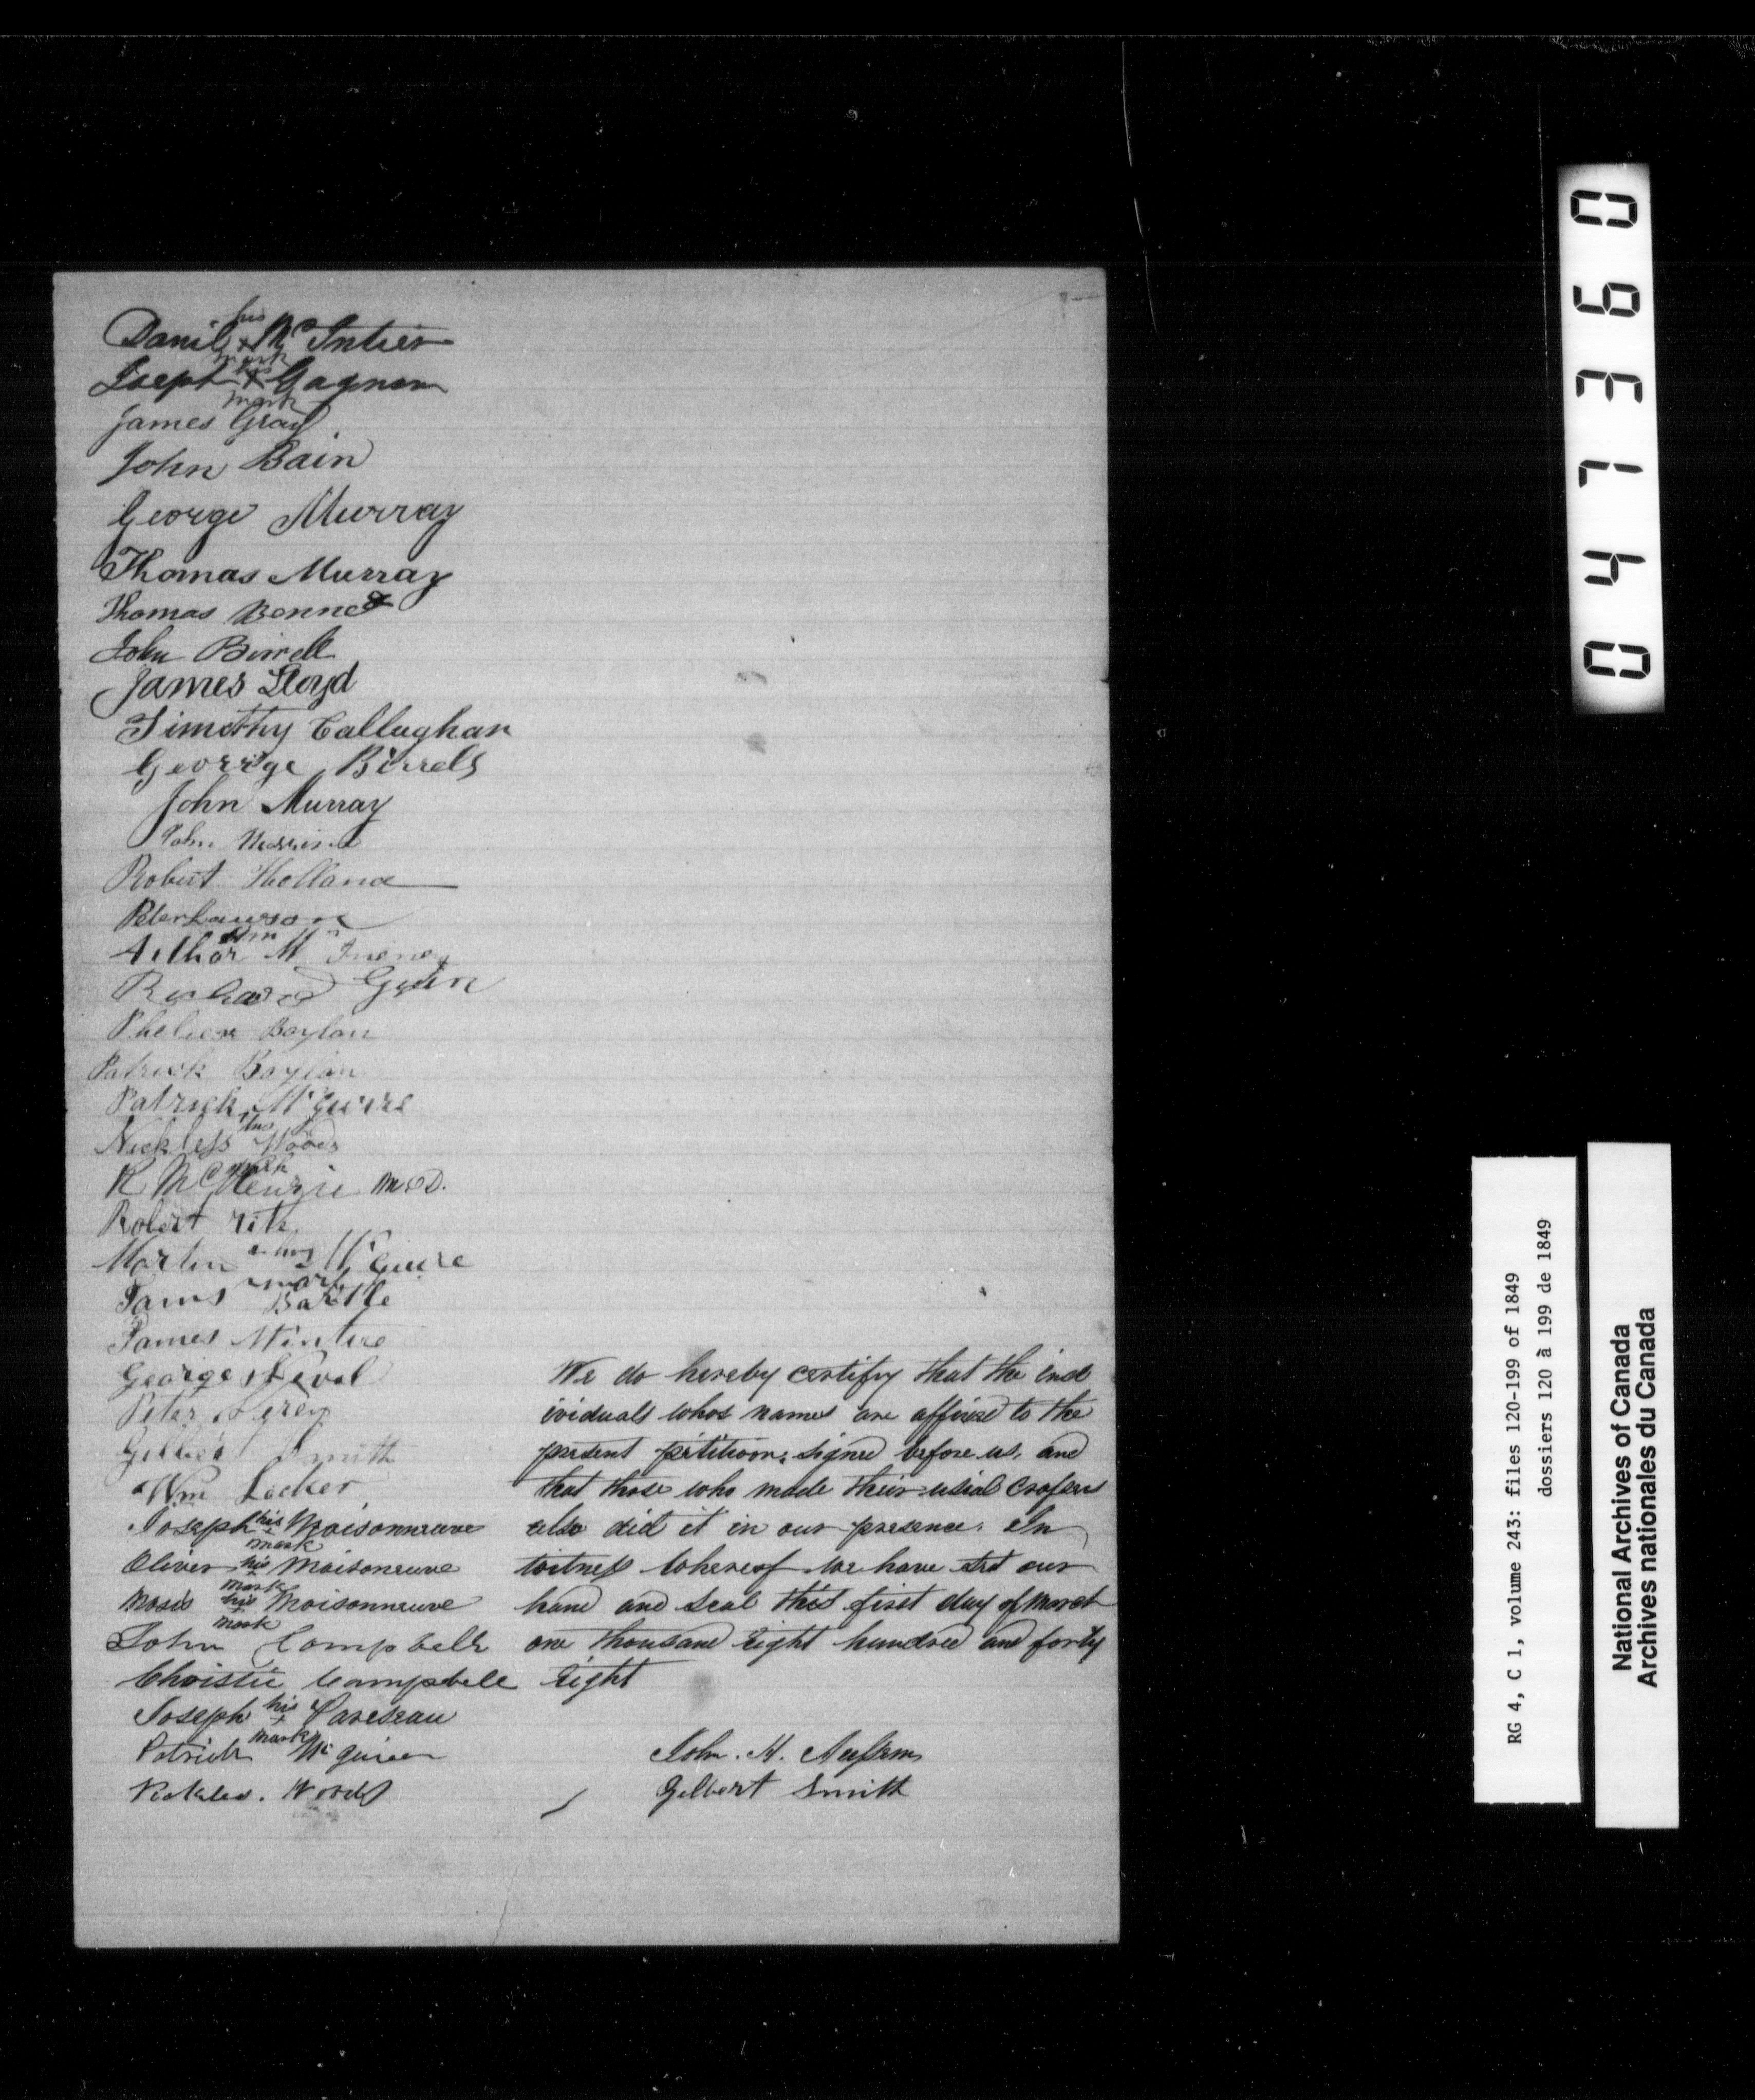 Danil his + mark McIntier
Joseph his + mark Gagnon
James Gray
John Bain
George Murray
Thomas Murray
Thomas Bennet
John Birrell
James Lloyd
Timothy Callaghan
George Birrels
John Murray
John
Robert Holland
Peter Lawson
Arthor Mc
Richard
Boylan
Patrick Boylan
Patrick McGuire
Nickless his mark Woods
R McKenzie M.D.
Robert
Martin his mark McGuire
James
James
George
Peter
Smith
Wm Locker
Joseph his + mark Moisonneuve
Oliver his + mark Maisoneuve
Mosis his + mark Moisonneuve
John Campbell
Christie Campbell
Joseph his + mark
Patrick McGuire
Woods
We do hereby certify that the ind
ividuals whos names are affixed to the
present petition, signed before us, and
that those who made their usial crosses
also did it in our presence. In
witness whereof we have set our
hand and seal this first day of March
one thousand eight hundred and forty
eight
John. H.
Gilbert Smith
047360
RG 4, C 1, volume 243: files 120-199 of 1849
dossiers 120 à 199 de 1849
National Archives of Canada
Archives nationales du Canada